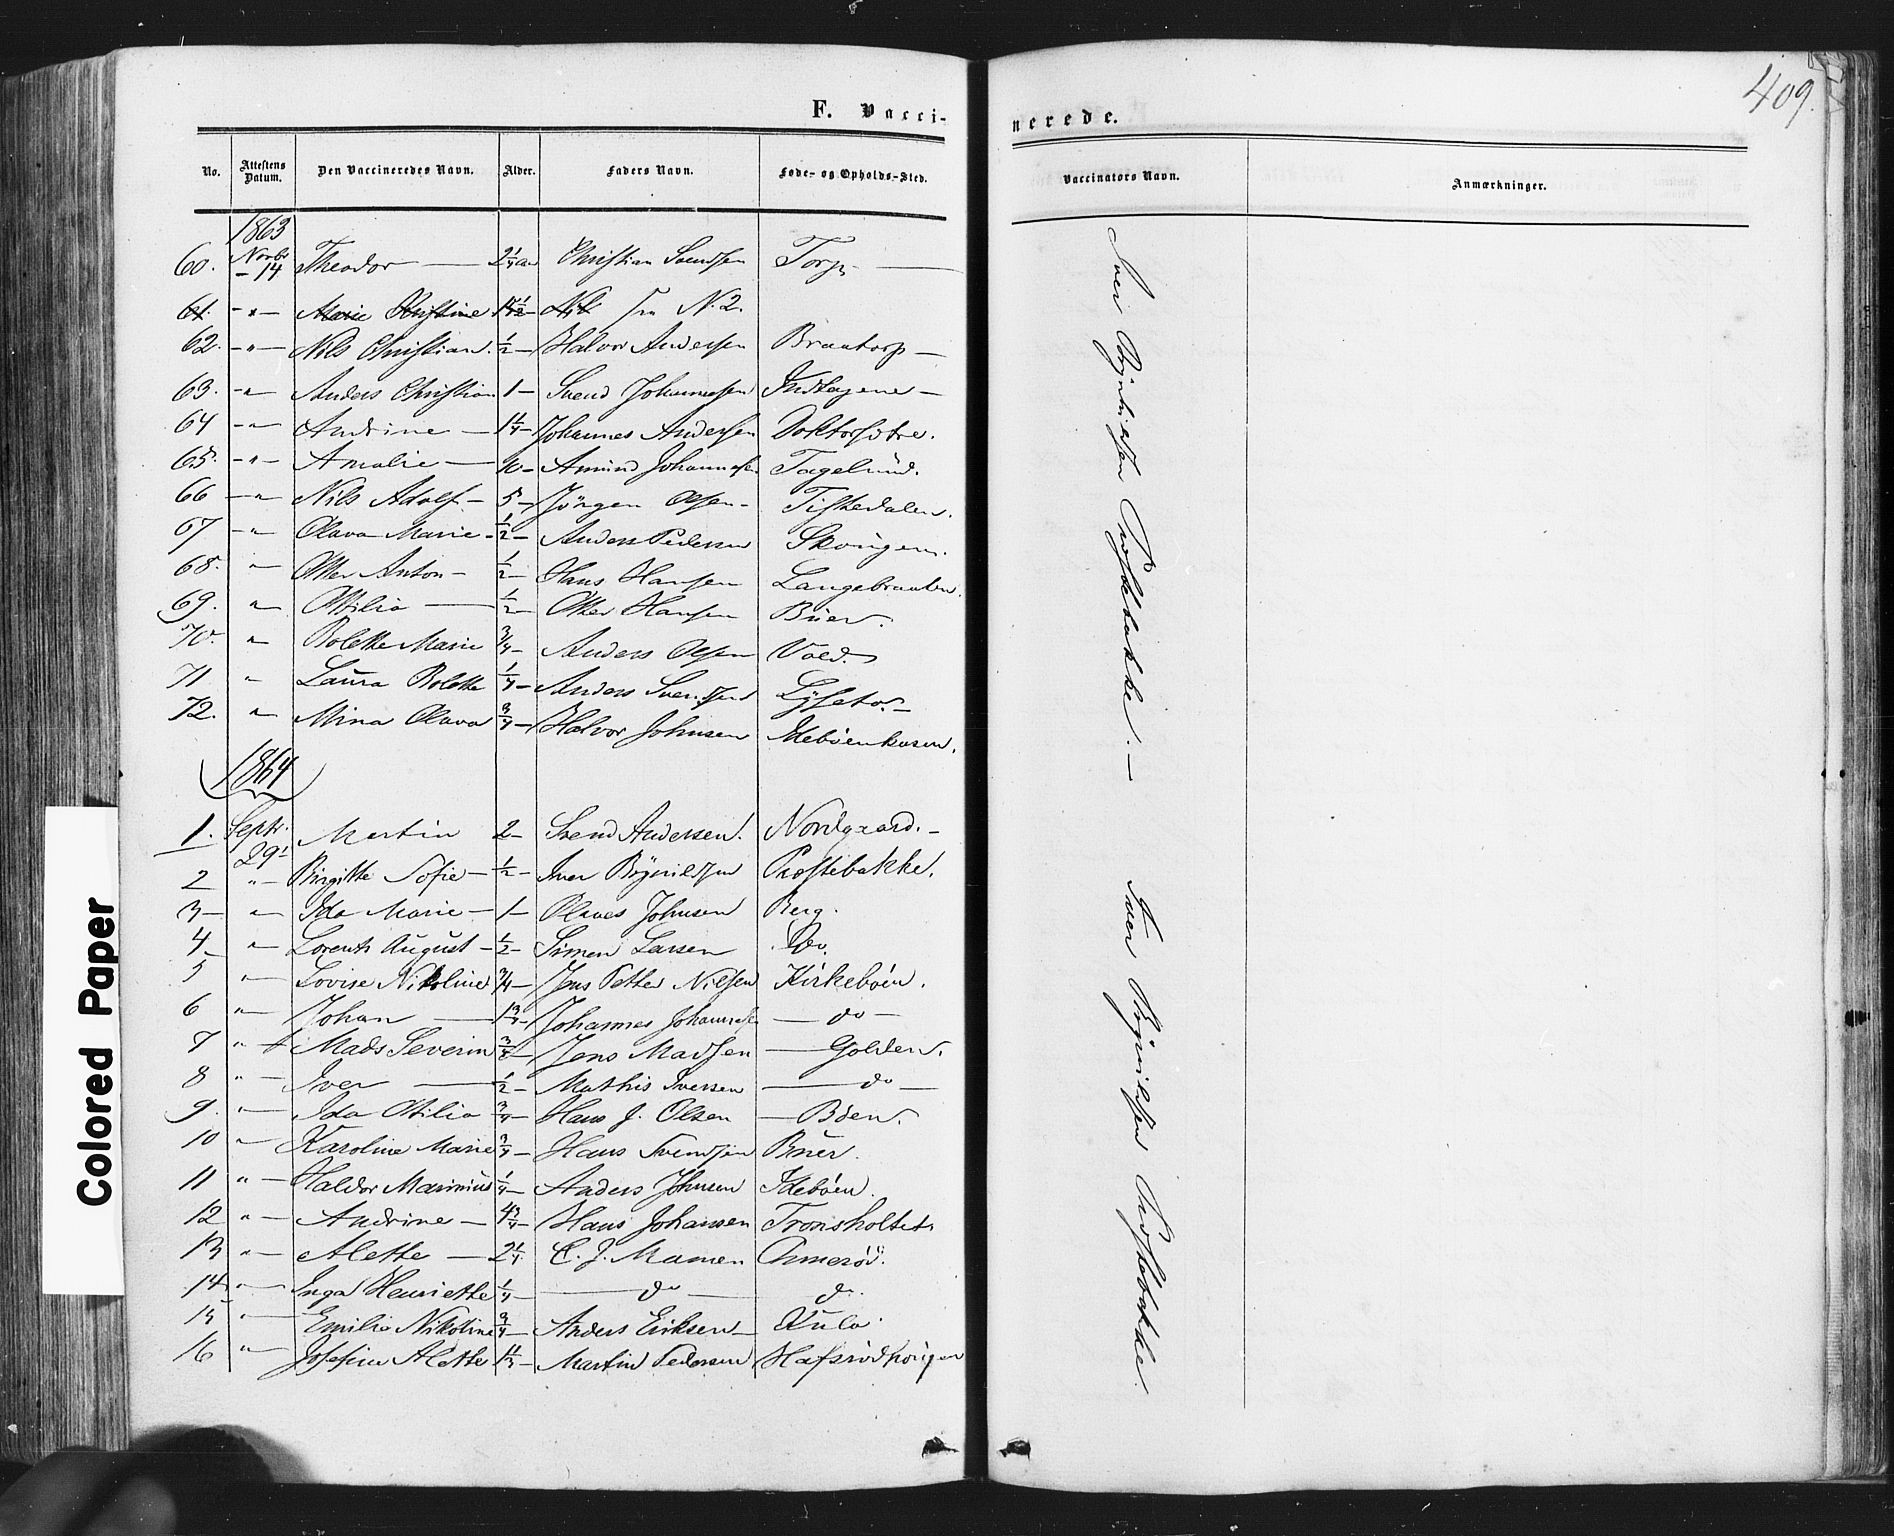 409.
F. Vacci-
nerede.
No. Attestens Datum. Den Vaccineredes Navn. Alder. Faders Navn. Føde- og Opholds-Sted. Vaccinators Navn. Anmærkninger.
1863
60. Novbr - 14 Theodor — 2¼ aar Christian Svendsen Torp —
61. - " - Marie Christine 1½ - Nils Fra N. 2.
62. - " - Nils Christian. ½ - Halvor Andersen Braatorp —
63. - " - Anders Christian 1 - Svend Johannesen Indtagene —
64 - " - Andrine — 1¼ - Johannes Andersen Doktorsætre.
65. - " - Amalie — 10 - Amund Johannesen Fagelund.
66 - " - Nils Adolf - 5 - Jörgen Olsen - Tistedalen.
67 - " - Olava Marie - ½ - Anders Pedersen Skougen.
68. " - Otter Anton - ½ - Hans Hansen Langebraaten.
69. " - Ottilia — ½ - Otter Hansen Büer.
70. " - Bolette Marie ¾ - Anders Olsen Vold.
71 " Laura Bolette ¼ - Anders Svendsen Lyseto. -
72. " Mina Olava ¾ - Halvor Johnsen Idebøenkasen.
1864
1. Septr. 29 Martin 2 - Svend Andersen. Nordgaard. -
2 " - Birgitte Sofie - ½ - Iver Bøjerilsen Prestebakke.
3 - " - Ida Marie - 1 - Olaves Johnsen Berg.
4 " - Lorents August - ½ - Simen Larsen do.
5 " - Lovise Nikoline ¾ - Jens Petter Nilsen Kirkebøen.
6 " - Johan — 1¾ - Johannes Johannesen — do —
7 " - Mads Severin ¾ - Jens Madsen — Golden.
8 " - Iver — ½ - Mathis Iversen — do —
9. " - Ida Otilia ¾ - Hans J. Olsen — Bøen.
10 " - Karoline Marie ¾ - Hans Svendsen Büer.
11 " - Haldor Marinius ¼ - Anders Johnsen Idebøen.
12 " - Andrine - 4¾ - Hans Johansen Tronsholtet
13 " - Alette — 2¼ - C. J. Mamen
14 " - Inga Henriette ¼ - — do — do.
15 " - Emilie Nikoline ¾ - Anders Eriksen — Kula
16 " - Josefine Alette 1⅓ - Martin Pedersen Hafsrødhougen
Iver
Iver
Colored Paper